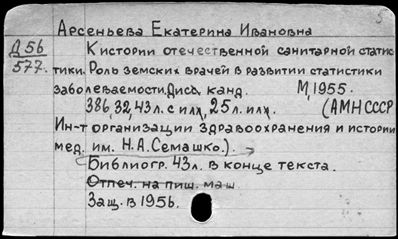 Арсеньева Екатерина Ивановна
Д56
577.
К истории отечественной санитарной статис-
тики. Роль земских врачей в развитии статистики
заболеваемости. Дисс. канд. М, 1955.
386, 32, 43 л. с илл, 25 л. илл. (АМН СССР
Ин-т организации здравоохранения и истории
мед. им. Н.А. Семашко.)
Библиогр. 43 л. в конце текста.
Отпеч. на пиш. маш
Защ. в 1956.